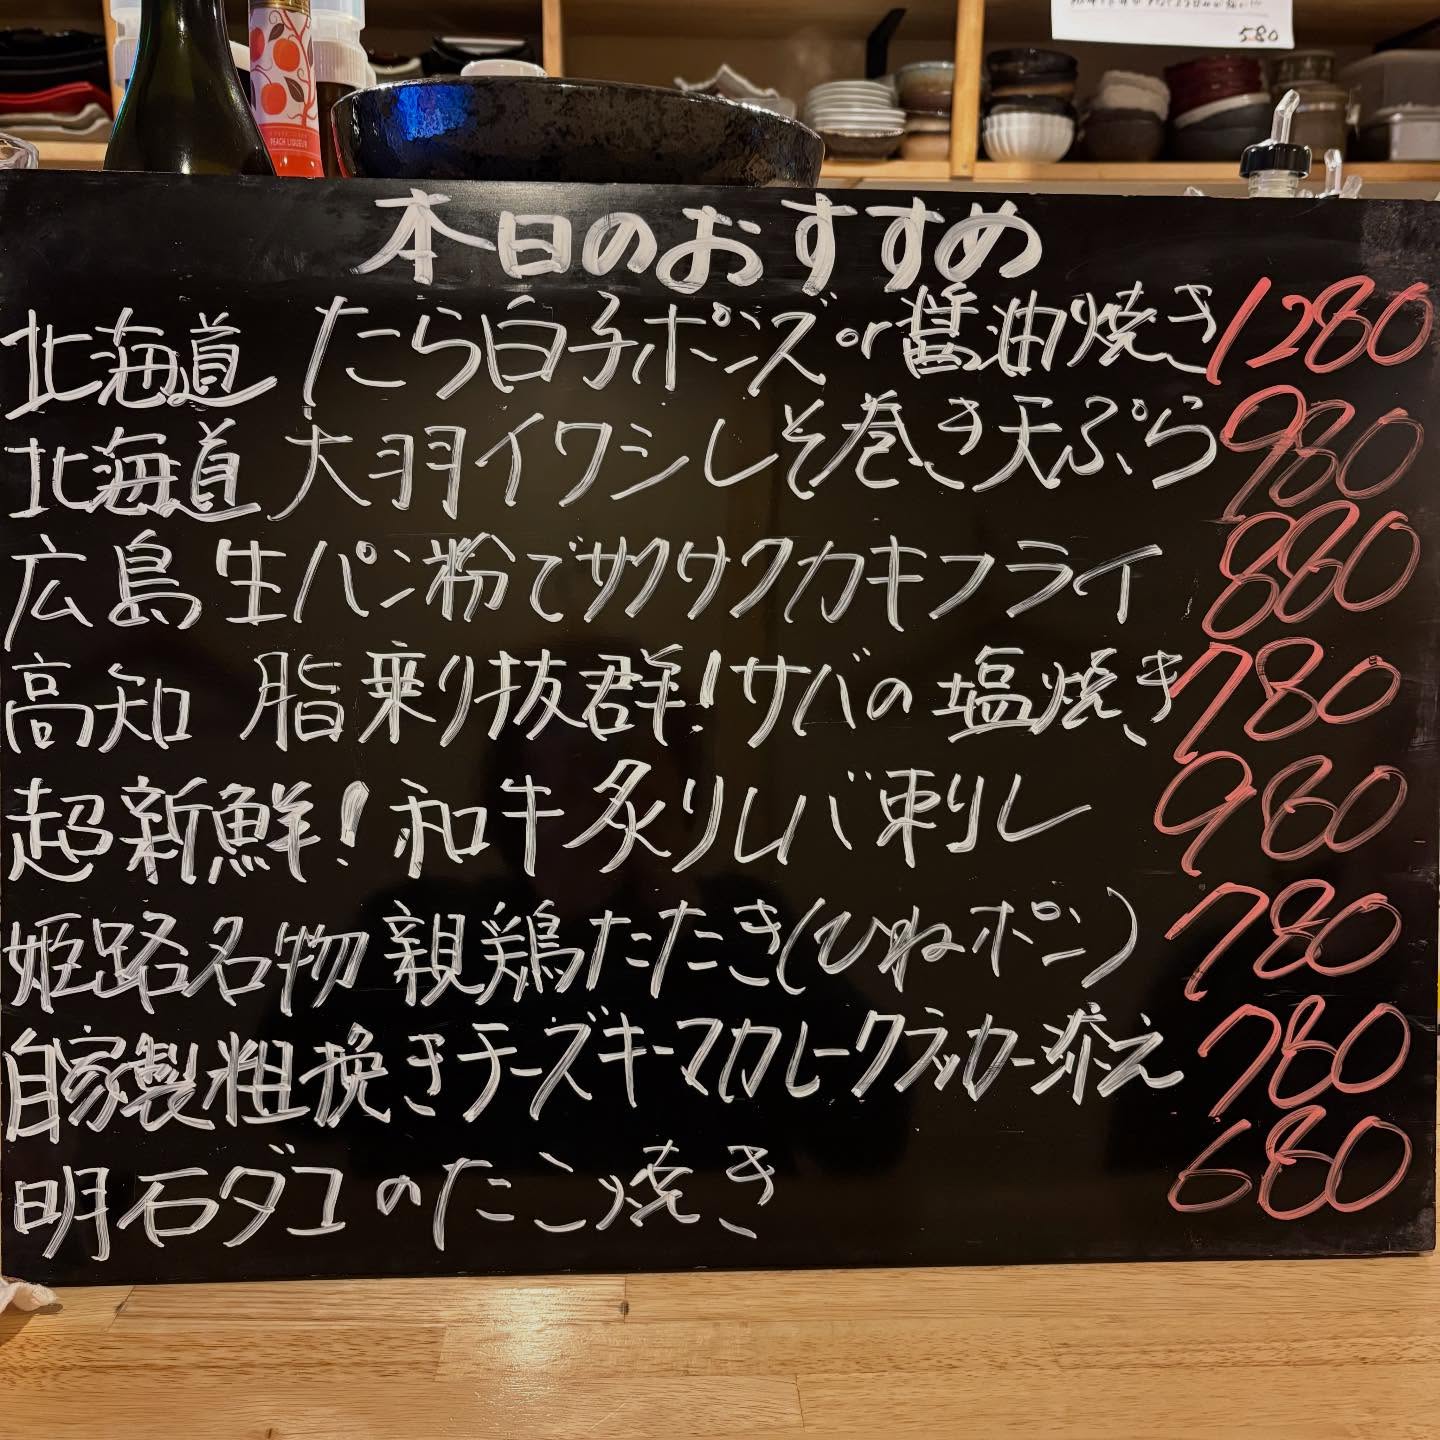 580
PEACH LIQUEUR
本日のおすすめ
北海道 たら白子ポンズor醤油焼き 1280
北海道 大羽イワシしそ巻き天ぷら 980
広島 生パン粉でサクサクカキフライ 880
高知 脂乗り抜群!サバの塩焼き 780
超新鮮!和牛炙りレバ刺し 980
姫路名物 親鶏たたき(ひねポン) 780
自家製粗挽きチーズキーマカレークラッカー添え 780
明石ダコのたこ焼き 680